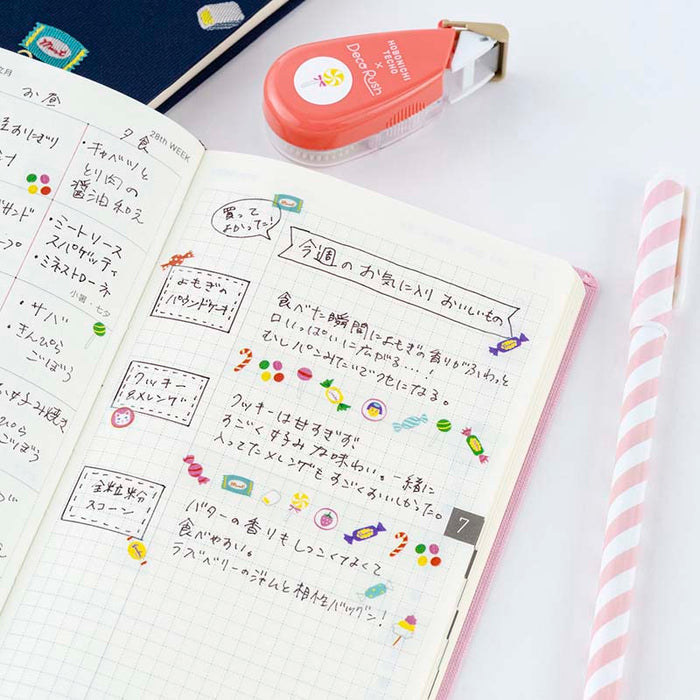 HOBONICHI
TECHO
×
Deco Rush
お昼
夕食
28th WEEK
・キャベツと
とり肉の
醤油和え
・ミートソース
スパゲッティ
・ミネストローネ
小暑・七夕
・サバ
・きんぴら
ごぼう
買って
よかった!
今週のお気に入りおいしいもの
よもぎの
パウンドケーキ
食べた瞬間によもぎの香りがふわっと
口いっぱいに広がる…!
むしパンみたいでクセになる。
クッキー
&メレンゲ
クッキーは甘すぎず、
すごく好みな味わい。一緒に
入ってたメレンゲもすごくおいしかった。
全粒粉
スコーン
バターの香りもしつこくなくて
食べやすい。
ラズベリーのジャムと相性バツグン!
7